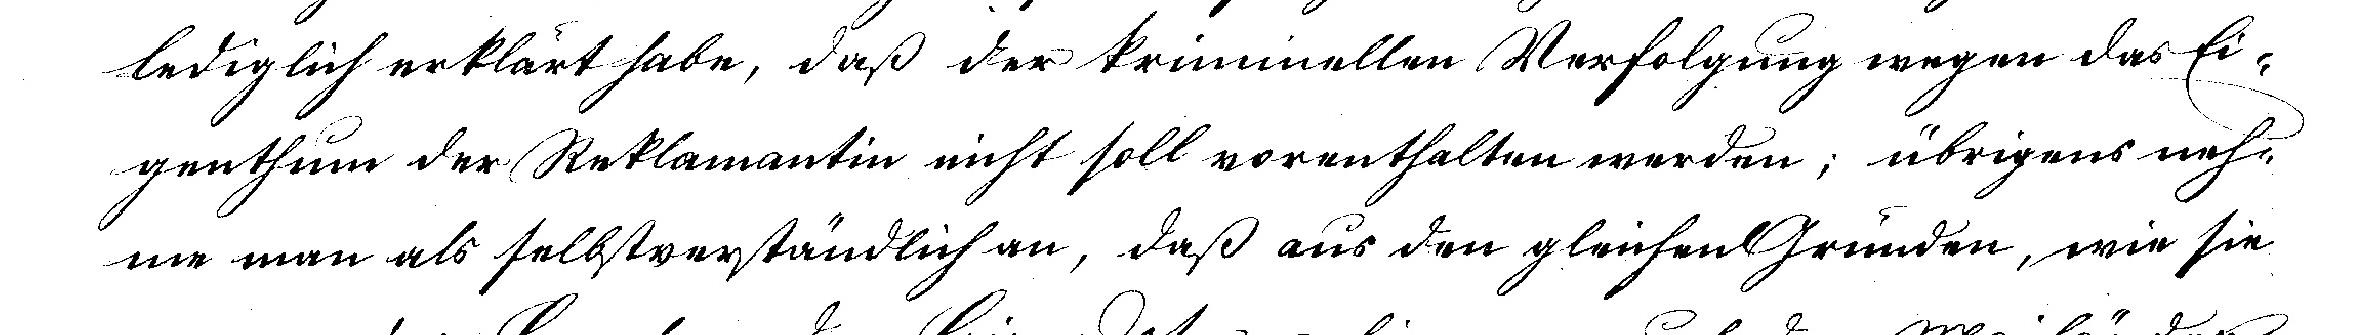 lediglich erklärt habe, daß der kriminellen Verfolgung wegen das Ei-
genthum der Reklamantin nicht soll vorenthalten werden; übrigens neh-
me man als selbstverständlich an, daß aus den gleichen Gründen, wie sie